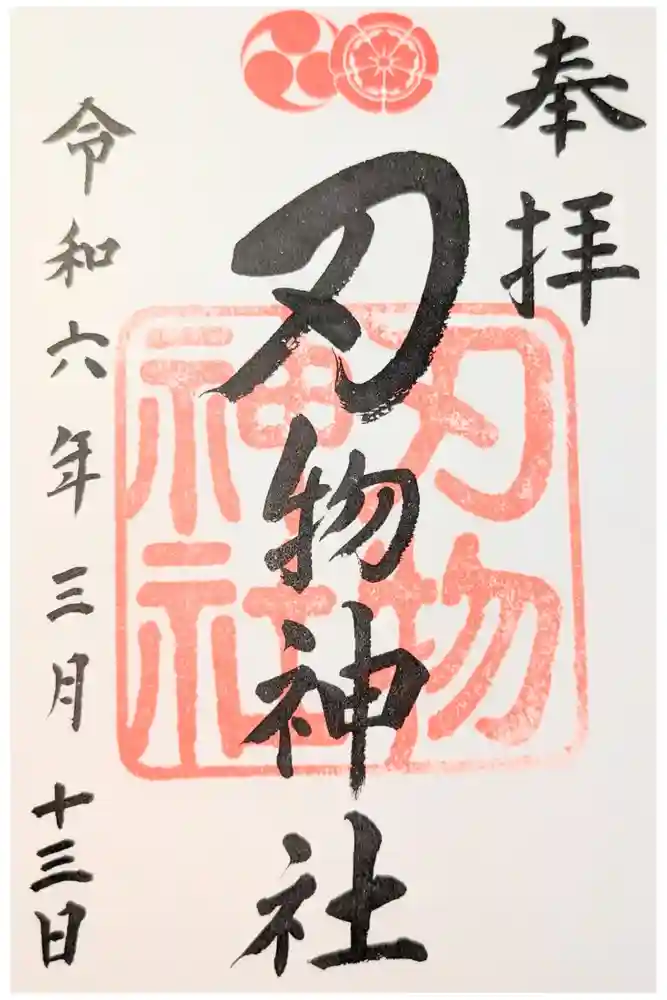 奉拝
刃物神社
刃物
神社
令和六年三月十三日